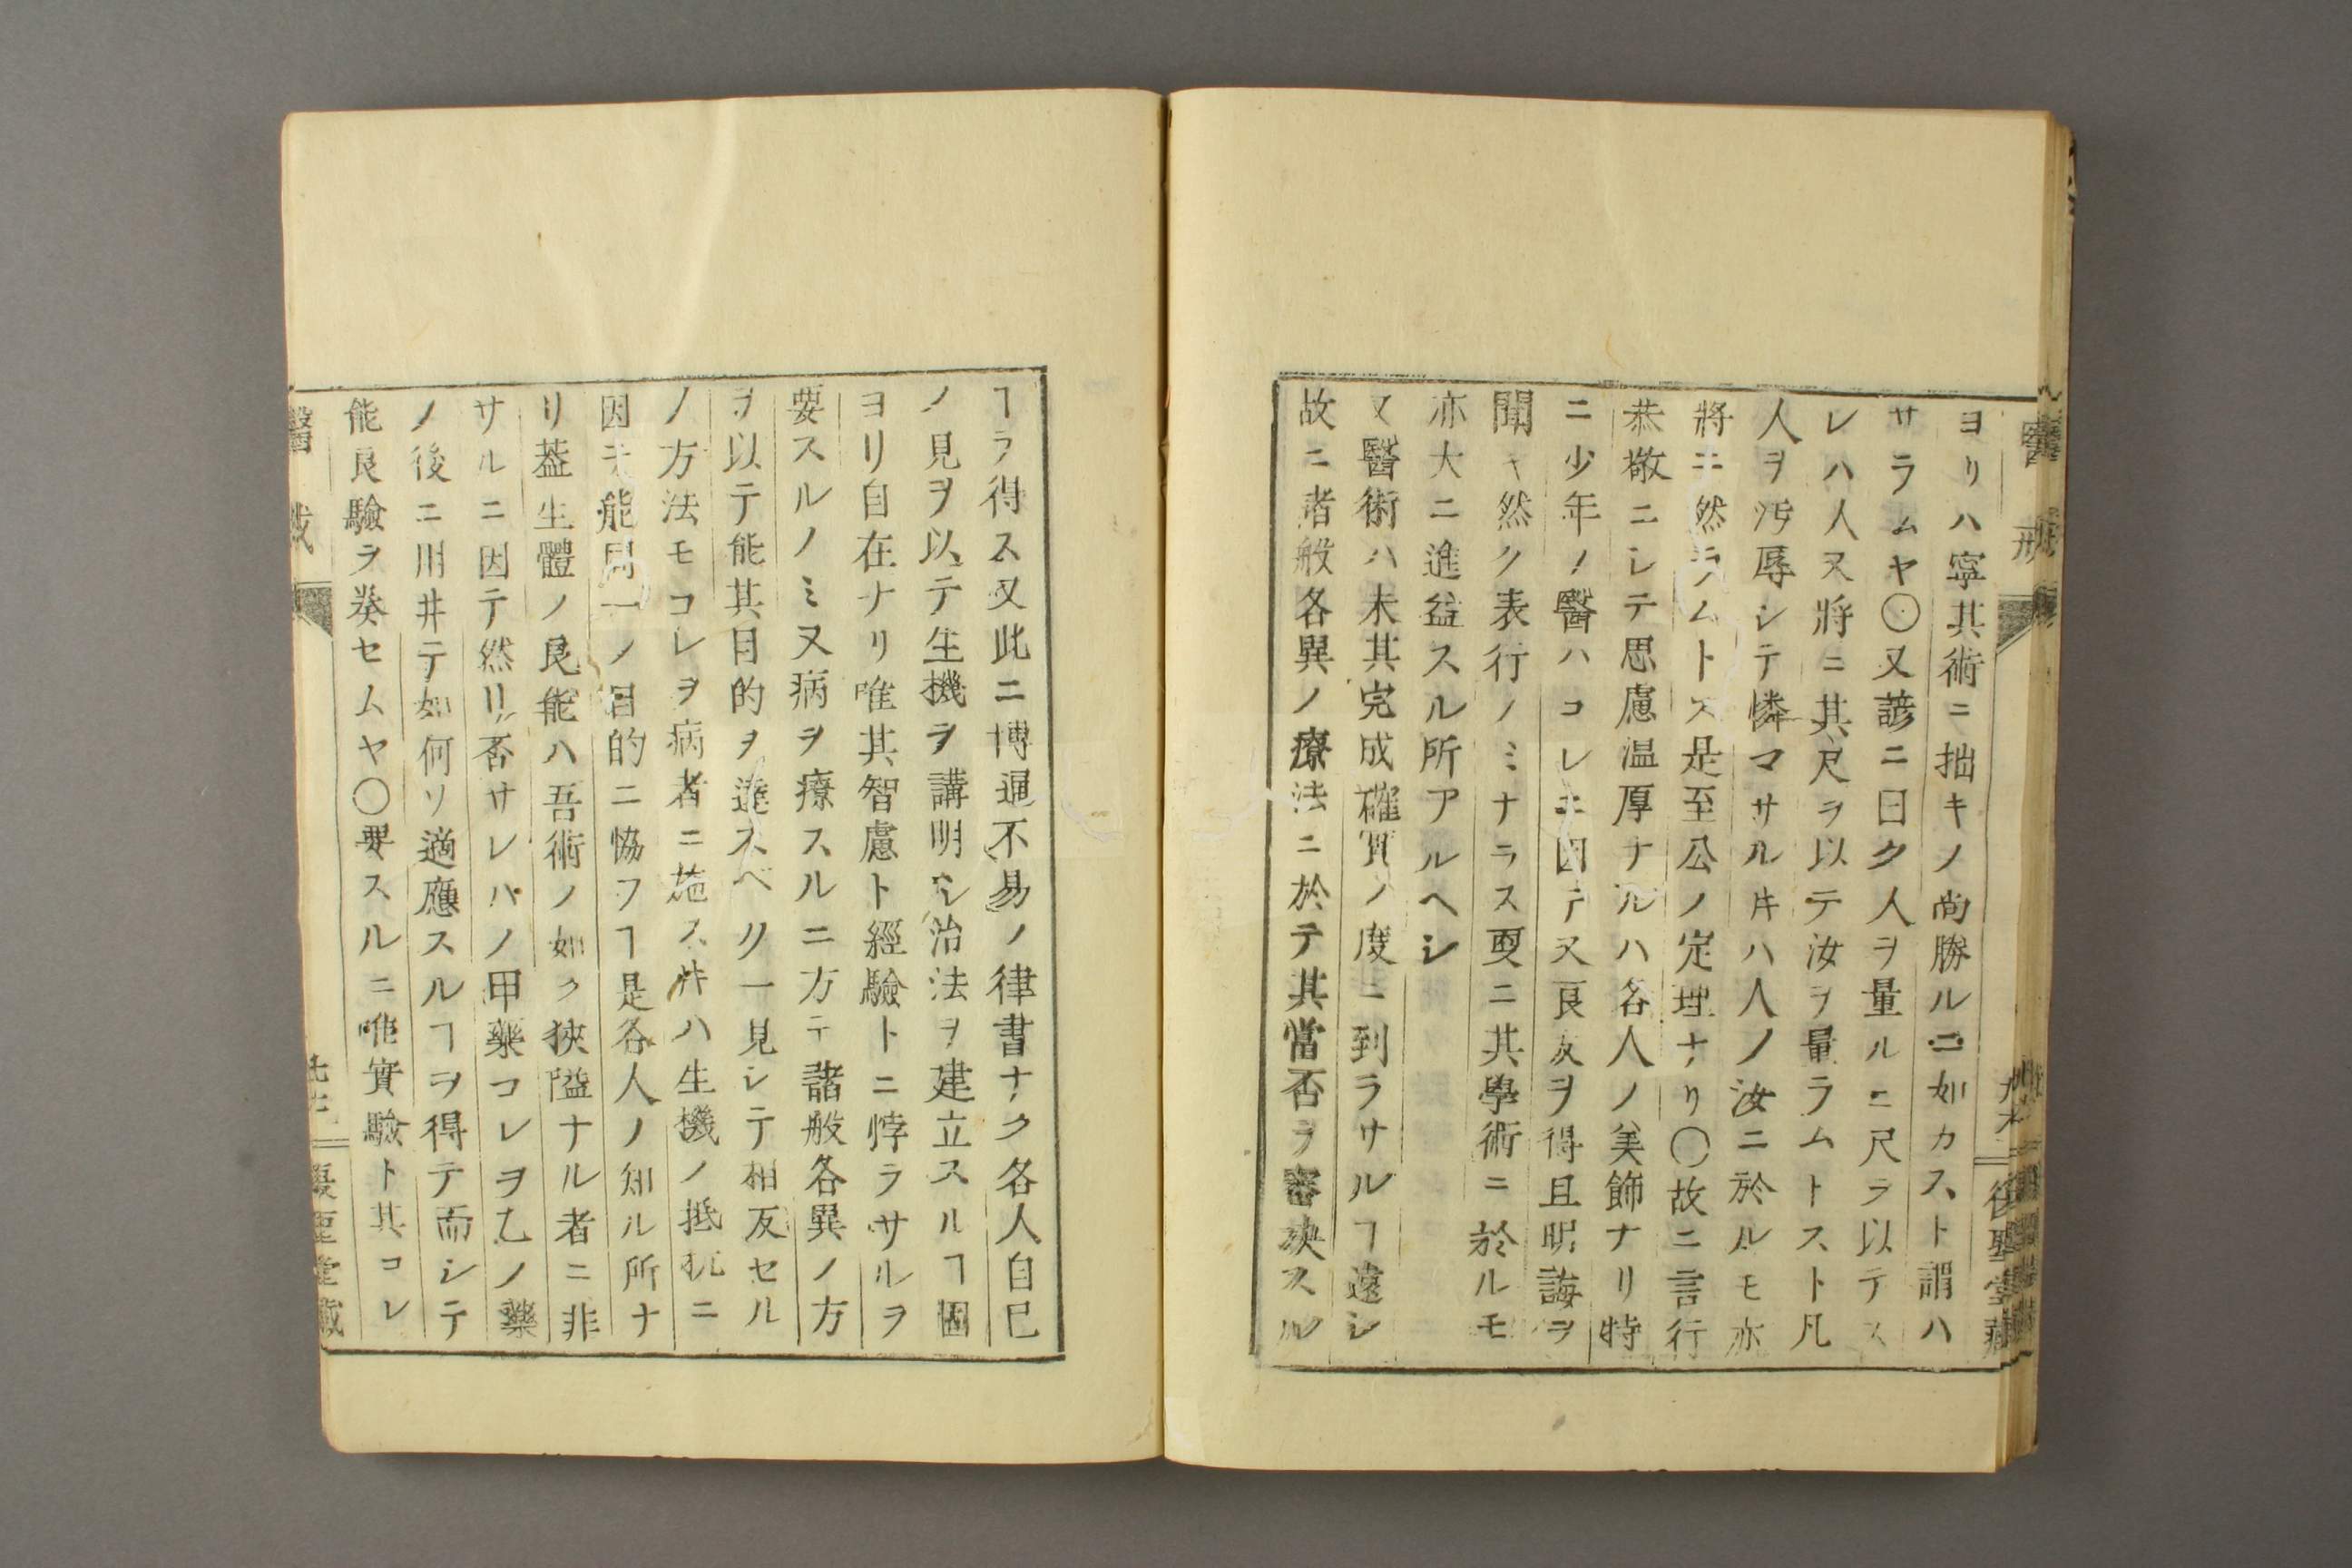 醫戒
ヨリハ寧其術ニ拙キノ尚勝ルニ如カスト謂ハ
サラムヤ〇又諺ニ曰ク人ヲ量ルニ尺ヲ以テス
レハ人又將ニ其尺ヲ以テ汝ヲ量ラムトスト凡
人ヲ汚辱シテ憐マサルキハ人ノ汝ニ於ルモ亦
將ニ然ラムトス是至公ノ定理ナリ〇故ニ言行
恭敬ニシテ思慮温厚ナルハ各人ノ美飾ナリ特
ニ少年ノ醫ハコレニ因テ又良友ヲ得且明誨ヲ
聞キ然ク表行ノミナラス更ニ其學術ニ於ルモ
亦大ニ進益スル所アルヘシ
又醫術ハ未其完成確實ノ度ニ到ラサルヿ遠シ
故ニ諸般各異ノ療法ニ於テ其當否ヲ審決スル
ヿヲ得ス又此ニ博通不易ノ律書ナク各人自己
ノ見ヲ以テ生機ヲ講明シ治法ヲ建立スルヿ固
ヨリ自在ナリ唯其智慮ト經驗トニ悖ラサルヲ
要スルノミ又病ヲ療スルニ方テ諸般各異ノ方
ヲ以テ能其目的ヲ達スベク一見シテ相反セル
ノ方法モコレヲ病者ニ施スキハ生機ノ抵抗ニ
因テ能同一ノ目的ニ協フヿ是各人ノ知ル所ナ
リ蓋生體ノ良能ハ吾術ノ如ク狹隘ナル者ニ非
サルニ因テ然リ否サレバノ甲藥コレヲ乙ノ藥
ノ後ニ用井テ如何ソ適應スルヿヲ得テ而シテ
能良驗ヲ奏セムヤ〇要スルニ唯實驗ト其コレ
醫戒